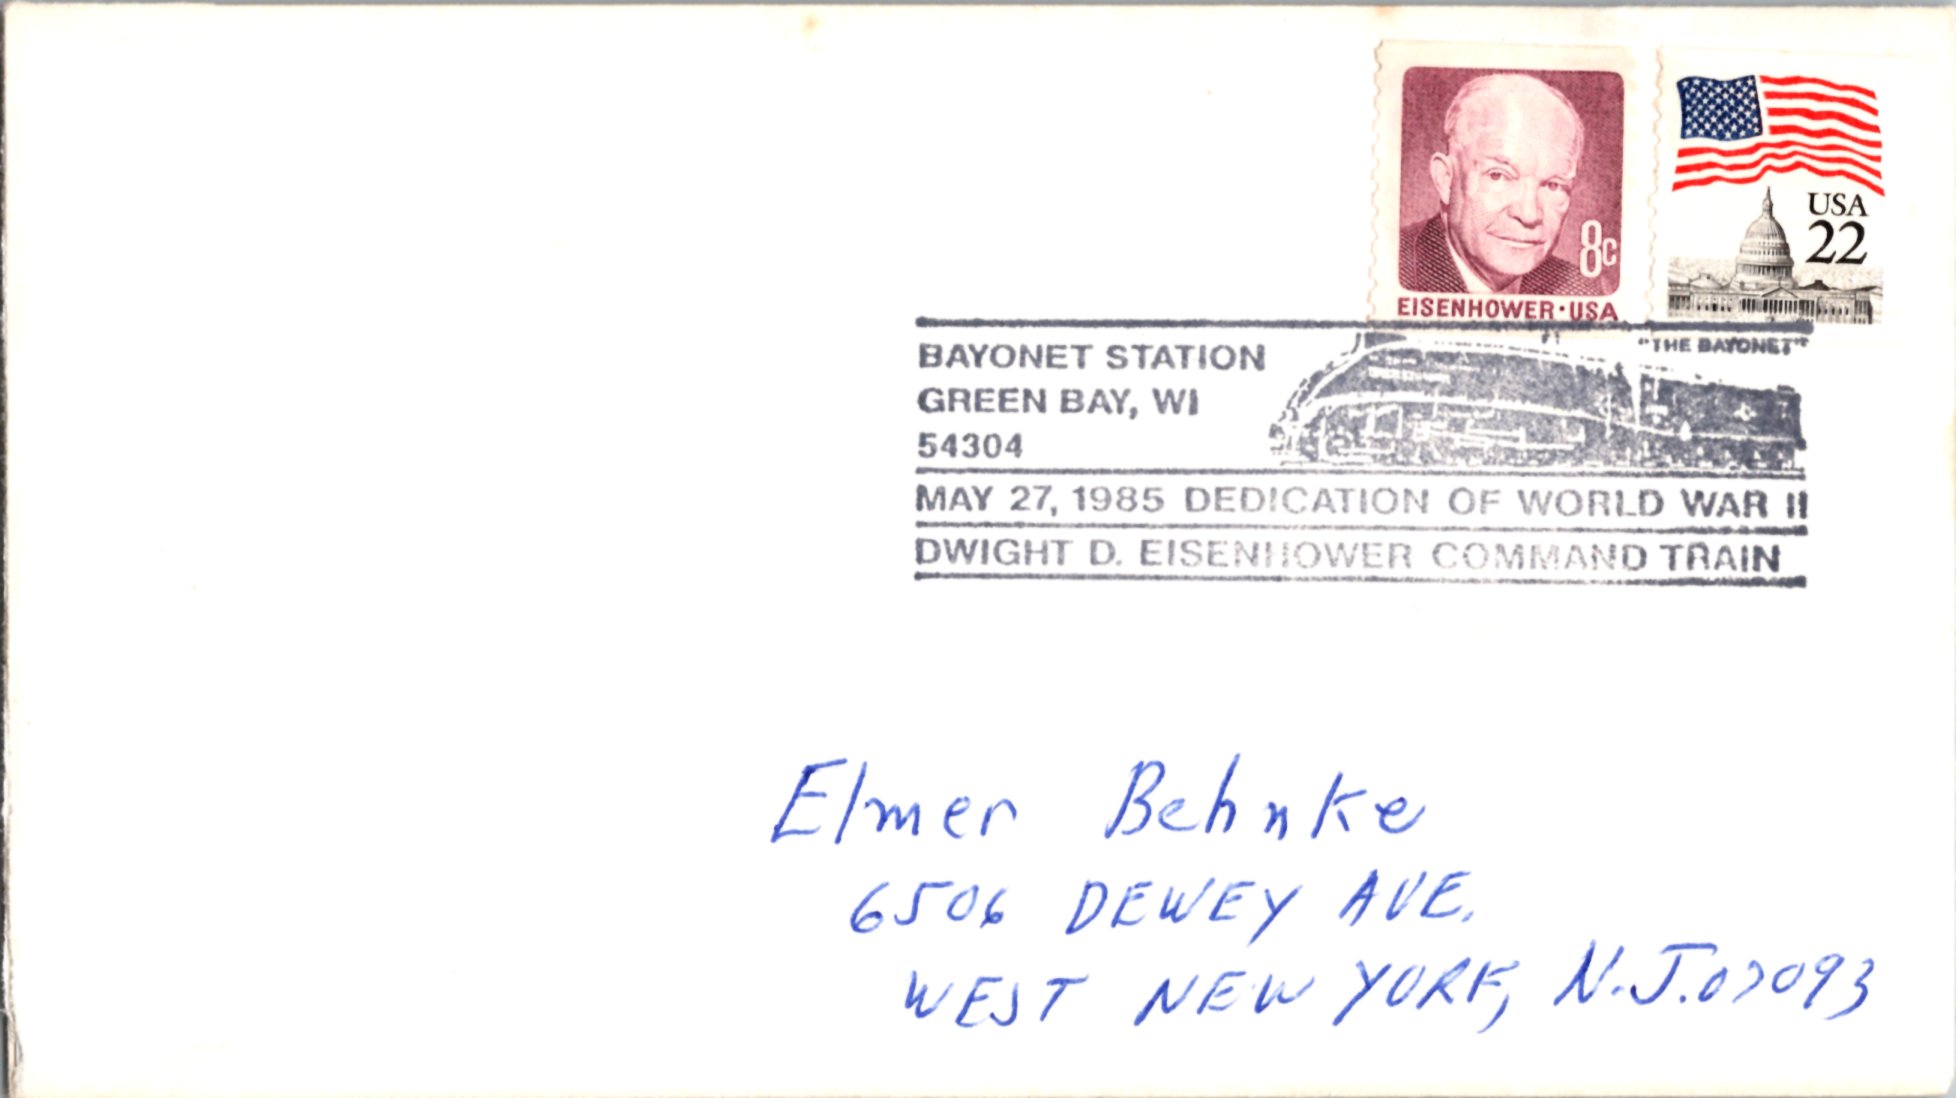 8c
EISENHOWER·USA
USA
22
BAYONET STATION
GREEN BAY, WI
54304
"THE BAYONET"
MAY 27, 1985 DEDICATION OF WORLD WAR II
DWIGHT D. EISENHOWER COMMAND TRAIN
Elmer Behnke
6506 DEWEY AVE.
WEST NEW YORK, N.J. 07093